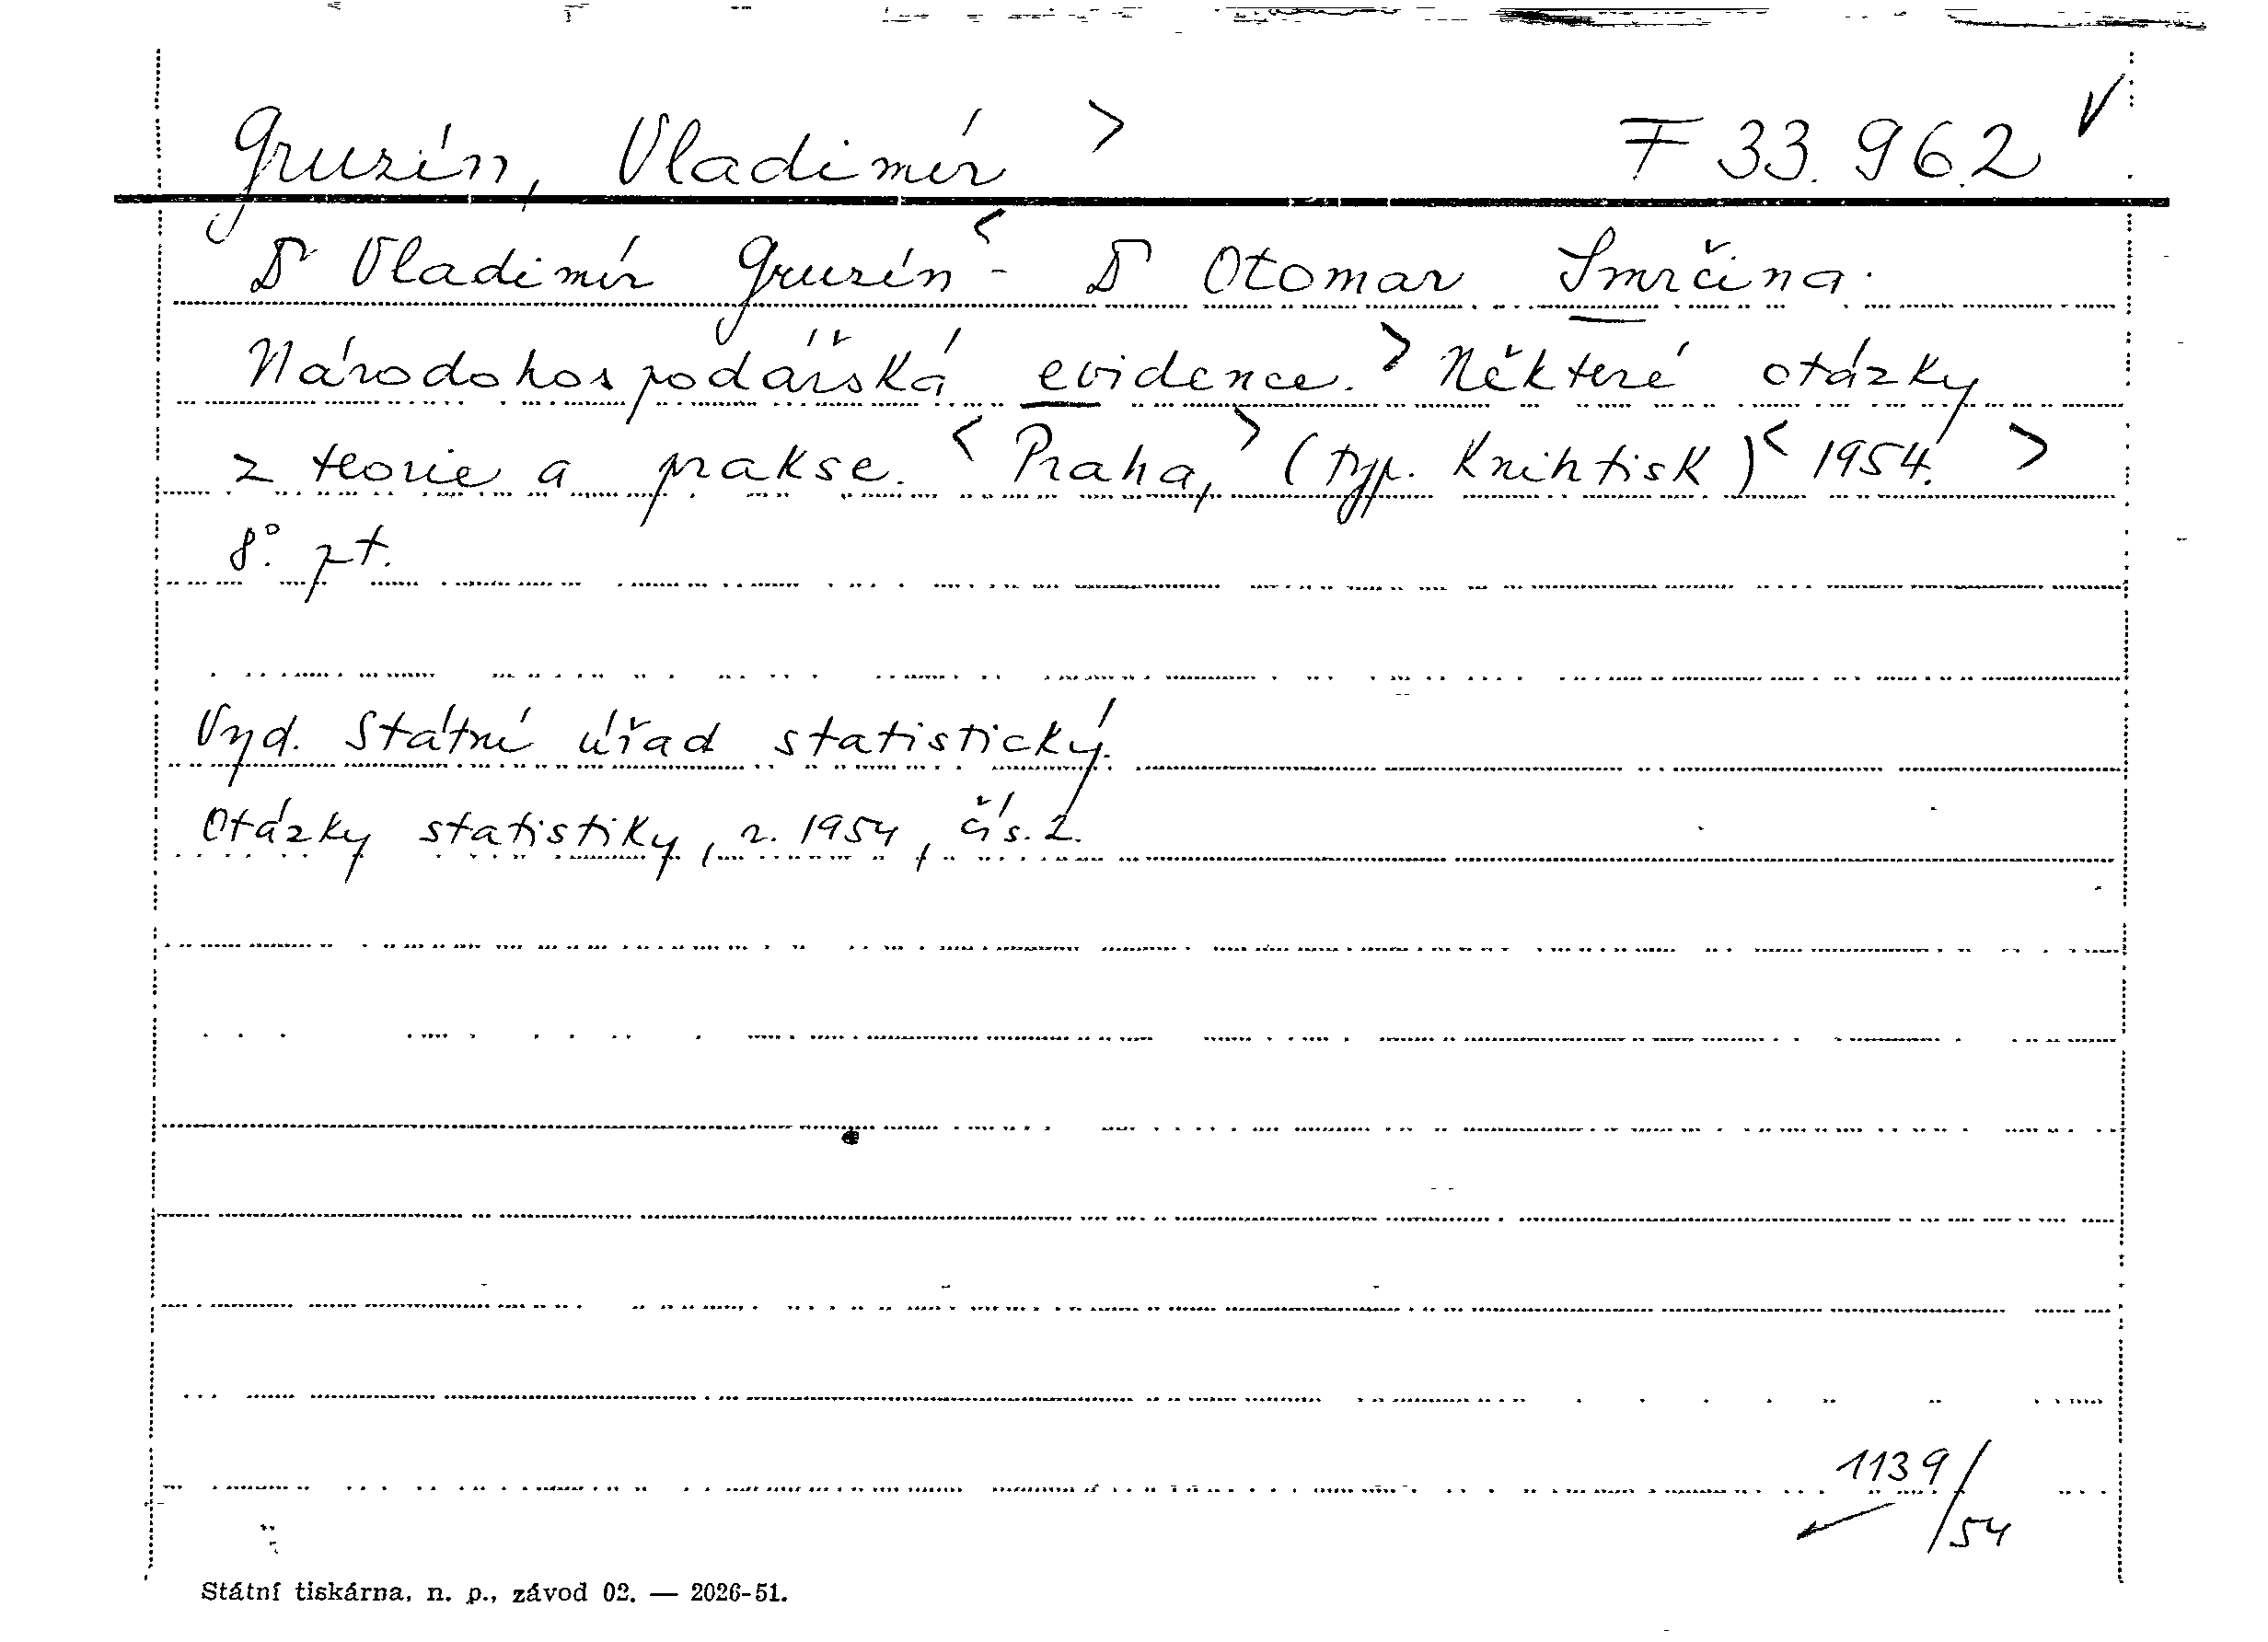 Gruzín, Vladimír > F 33.962 √
Dr Vladimír Gruzín < - Dr Otomar Smrčina.
Národohospodářská evidence. > Některé otázky
z teorie a prakse. < Praha, > (typ. Knihtisk) < 1954. >
8°. pt.
Vyd. Státní úřad statistický.
Otázky statistiky, r. 1954, čís. 2.
1139/54
Státní tiskárna, n. p., závod 02. — 2026-51.